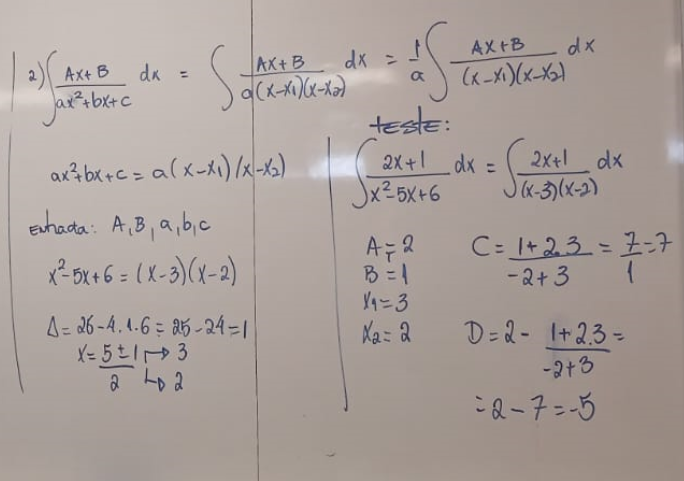 2) ∫ Ax+B / ax²+bx+c dx = ∫ Ax+B / a(x-x₁)(x-x₂) dx = 1/a ∫ Ax+B / (x-x₁)(x-x₂) dx
ax²+bx+c = a(x-x₁)(x-x₂)
Entrada: A, B, a, b, c
x²-5x+6 = (x-3)(x-2)
Δ = 25-4.1.6 = 25-24=1
x = 5±1 / 2 → 3
→ 2
teste:
∫ 2x+1 / x²-5x+6 dx = ∫ 2x+1 / (x-3)(x-2) dx
A = 2
B = 1
x₁ = 3
x₂ = 2
C = 1+2.3 / -2+3 = 7/1 = 7
D = 2 - 1+2.3 / -2+3 =
= 2-7 = -5